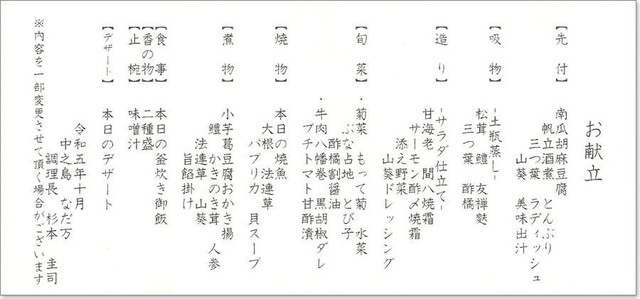 お献立
【先付】 南瓜胡麻豆腐
帆立酒煮 とんぶり
三つ葉 ラディッシュ
山葵 美味出汁
【吸物】 -土瓶蒸し-
松茸 鱧 友禅麩
三つ葉 酢橘
【造り】 -サラダ仕立て-
甘海老 間八焼霜
サーモン酢〆焼霜
添え野菜
山葵ドレッシング
【旬菜】 ・菊菜 もって菊 水菜
ぶな占地 とび子
酢橘割醤油
・牛肉八幡巻 黒胡椒ダレ
プチトマト甘酢漬
【焼物】 本日の焼魚
大根 法連草
パプリカ 貝スープ
【煮物】 小芋葛豆腐おかき揚
鱧 かきのき茸 人参
法連草 山葵
旨餡掛け
【食事】 本日の釜炊き御飯
【香の物】 二種盛
【止椀】 味噌汁
【デザート】 本日のデザート
令和五年十月
中之島 なだ万
調理長 杉本 圭司
※内容を一部変更させて頂く場合がございます